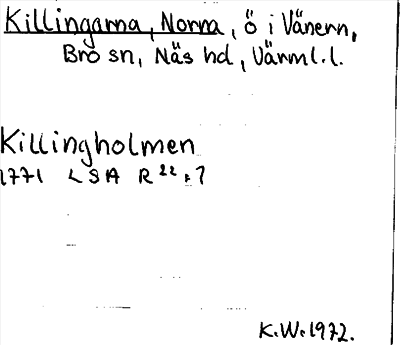 Killingarna, Norra, ö i Vänern,
Bro sn, Näs hd, Värml. l.
Killingholmen
1771 LSA R 22:7
K.W. 1972.